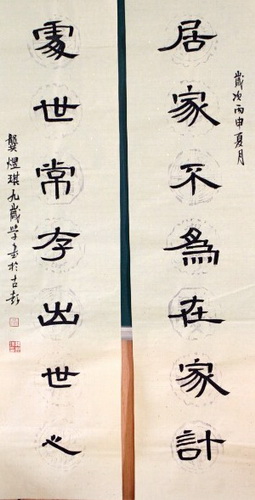 歲次丙申夏月
居家不為在家計
處世常存出世心
龔煜琪九歲學書於古彭